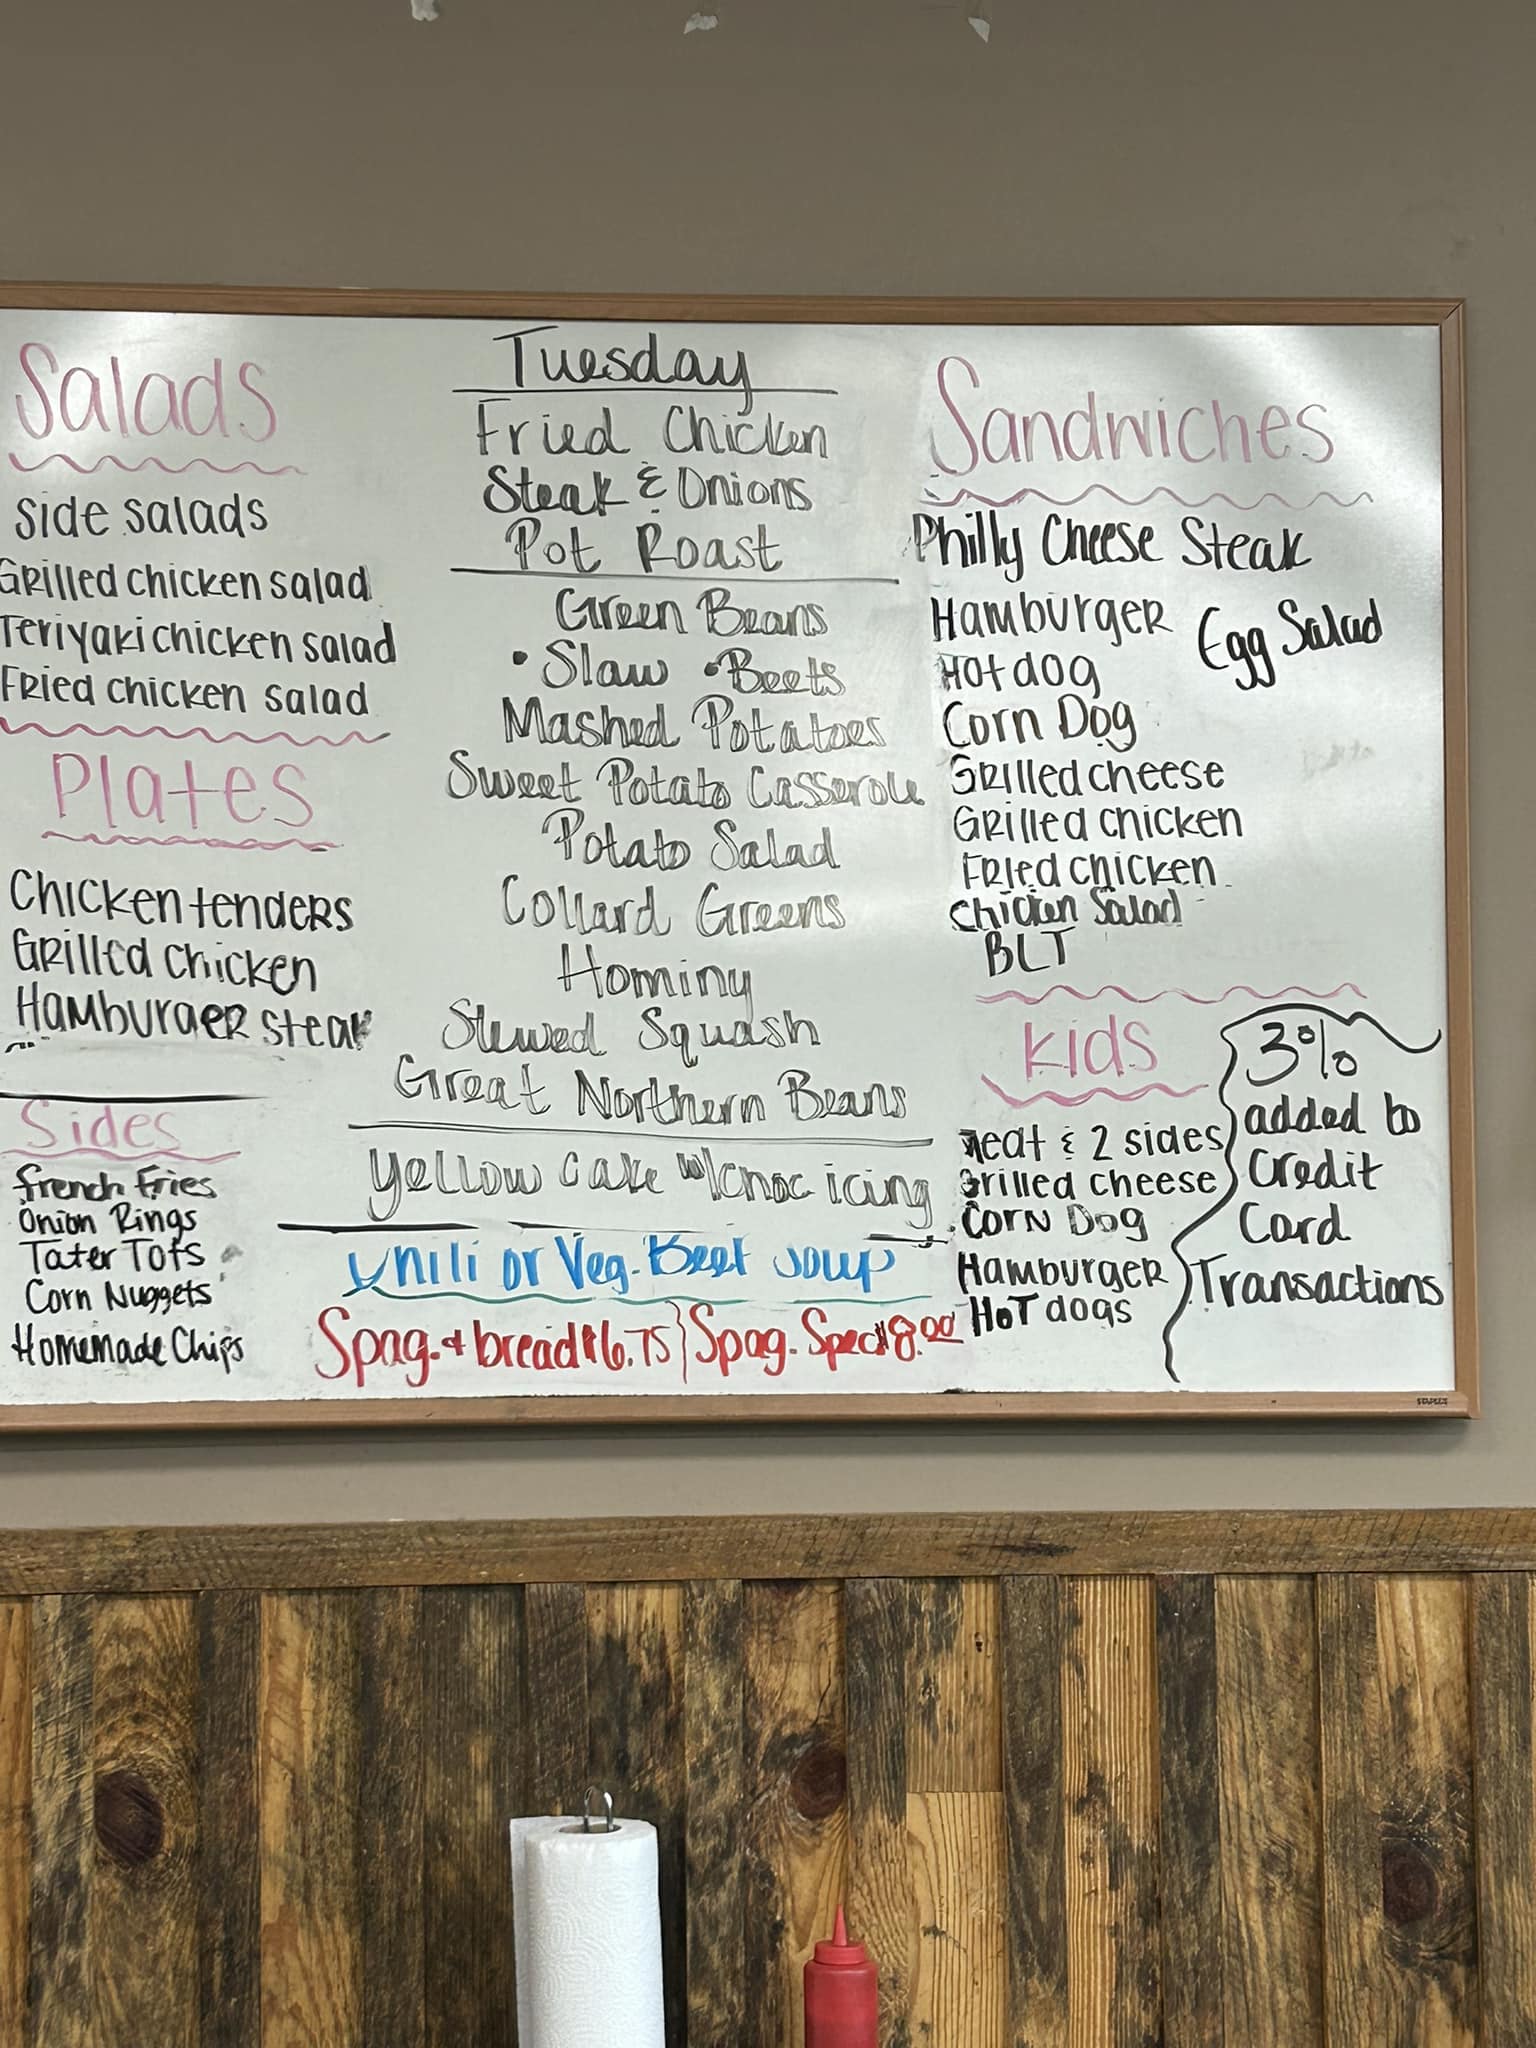 Salads
Side salads
Grilled chicken salad
Teriyaki chicken salad
Fried chicken salad
Plates
Chicken tenders
Grilled chicken
Hamburger steak
Sides
French Fries
Onion Rings
Tater Tots
Corn Nuggets
Homemade Chips
Tuesday
Fried Chicken
Steak & Onions
Pot Roast
Green Beans
• Slaw • Beets
Mashed Potatoes
Sweet Potato Casserole
Potato Salad
Collard Greens
Hominy
Stewed Squash
Great Northern Beans
Yellow Cake w/choc icing
Chili or Veg. Beef soup
Spag. & bread $6.75 Spag. Spec $8.00
Sandwiches
Philly Cheese Steak
Hamburger
Egg Salad
Hot dog
Corn Dog
Grilled cheese
Grilled chicken
Fried chicken
Chicken Salad
BLT
Kids
meat & 2 sides
Grilled cheese
Corn Dog
Hamburger
Hot dogs
3%
added to
Credit
Card
Transactions
STAPLES